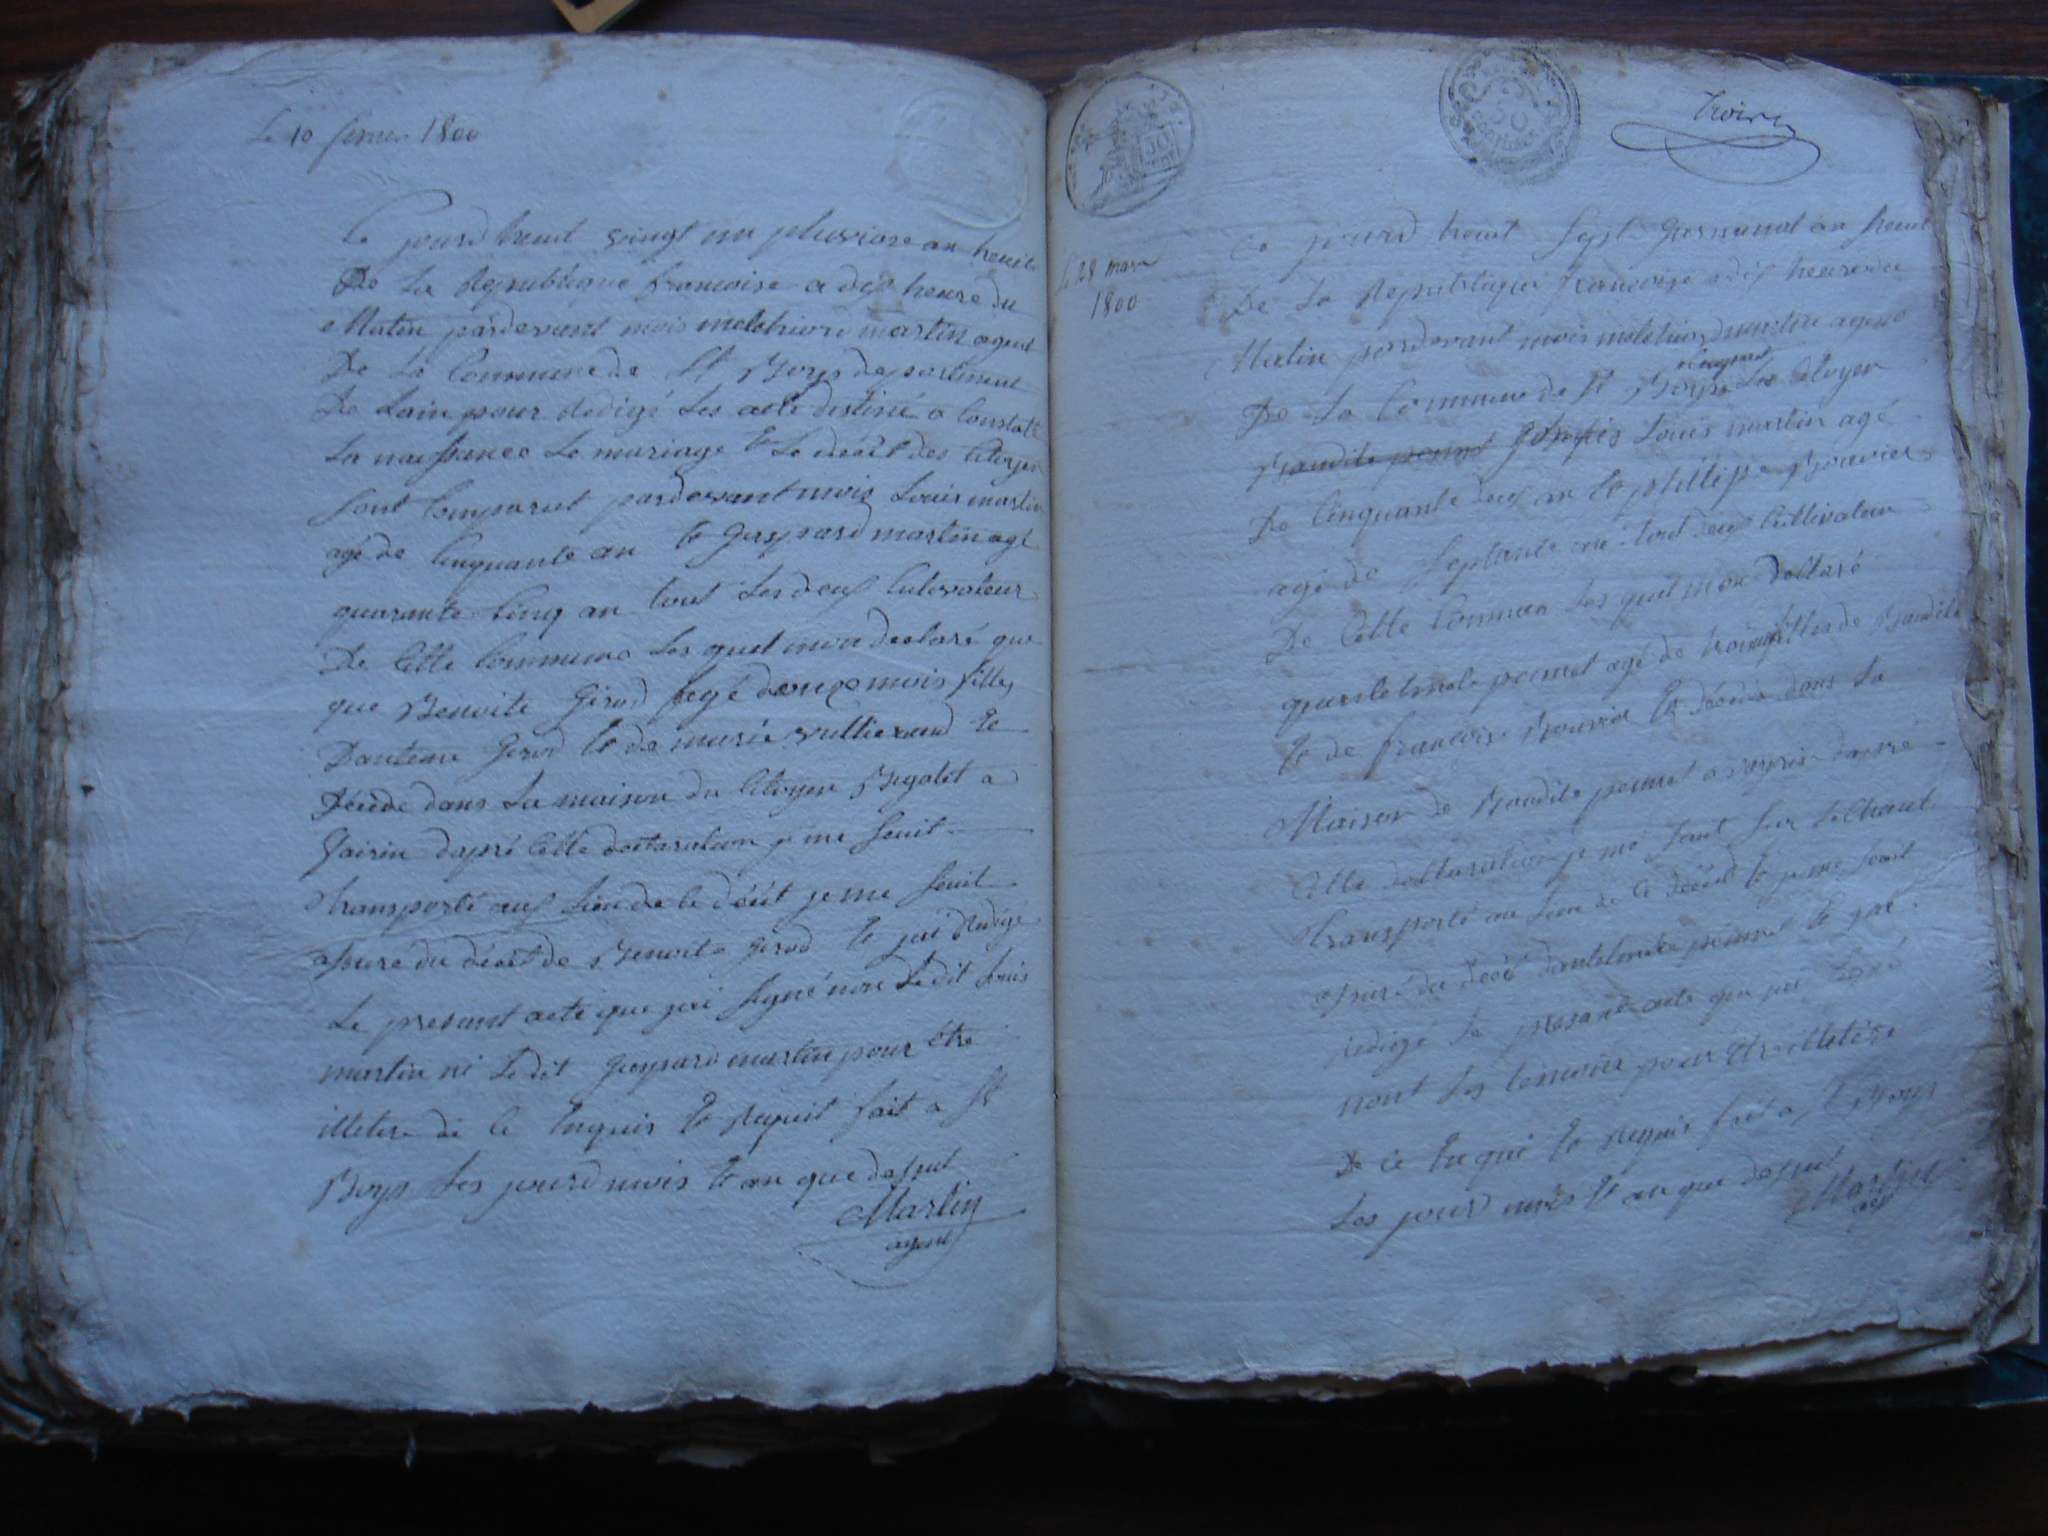 Le 10 fevrier 1800
Ce jourd heuit vingt un pluviose an heuit
De La Republique francoise a dix heure du
Matin pardevant mois melchiord martin agent
De La Commune de St Boys departement
De Lain pour Redigé Les acte destiné a Constaté
La naissance Le mariage et Le décét des Citoyen
sont Comparut pardevant mois Louis martin
agé de Cinquante an et Gaspard martin agé
quarante Cinq an tout Les deux Cultivateur
De Cette Commune Les quel mon declaré que
que Benoite Girod agé douze mois fille
Danteme Girod et de marie vullierand et
Décédé dans La maison du Citoyen Bigolet a
dapré Cette declaration je me suit
Transporté aux Lieu de Ce décét je me suit
assuré du décét de Benoite Girod et jai Redigé
Le present acte que jai signé non Le dit Louis
martin ni Le dit Gaspard martin pour être
illetere de Ce Enquis et Requit fait a St
Boys Les jourd mois et an que dessut
Martin
agent
trois
le 28 mars
1800
Ce jourd heuit sept germinal an heuit
De La Republique francoise a dix heure du
Matin pardevant mois melchiord martin agent
De La Commune de St Boys Les Citoyen
Louis martin agé
De Cinquante deux an et phillipe Bouvier
agé de septante an tout deux Cultivateur
De Cette Commune Les quel mon declaré
pernet agé de trois fille de Baudite
et de francoise Bouvier et décédé dans La
Maison de Baudite pernet a dapré
Cette declaration je me suit sur Le Chant
Transporté au Lieu de Ce décét et je me suit
assuré du décét pernet et jai
redigé Le present acte que jai signé
nont Les temoins pour être illetére
De Ce Enqui et Requis fait a St Boys
Les jourd mois et an que dessut
Martin
agt